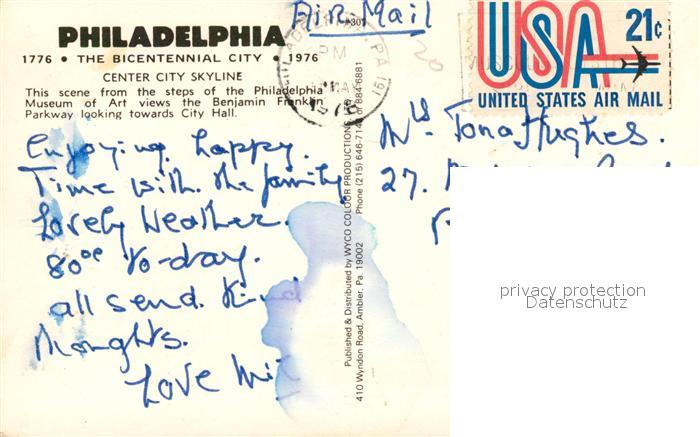 Air-Mail
#301
PHILADELPHIA
1776 • THE BICENTENNIAL CITY • 1976
CENTER CITY SKYLINE
This scene from the steps of the Philadelphia
Museum of Art views the Benjamin Franklin
Parkway looking towards City Hall.
Enjoying happy.
Time with the family
Lovely Weather.
80° to-day.
all send Kind
thoughts.
Love
Published & Distributed by WYCO COLOUR PRODUCTIONS
410 Wyndon Road, Ambler, Pa. 19002 Phone (215) 646-7140 or 884-6881
PM
MAY
USA 21¢
UNITED STATES AIR MAIL
Hughes.
27.
privacy protection
Datenschutz